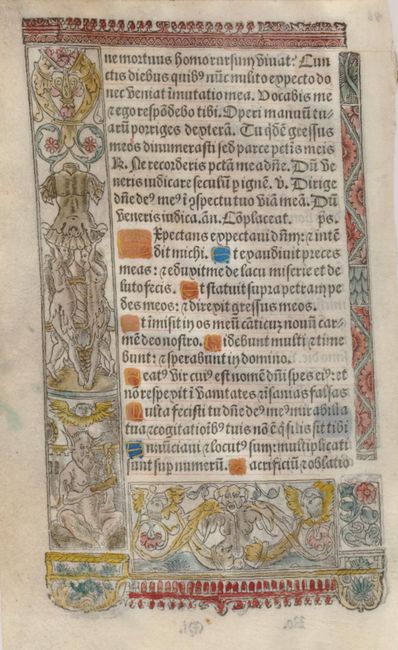 ne mortuus homo rursum viuat? Cun
ctis diebus quibꝰ nūc milito expecto do
nec veniat īmutatio mea. Vocabis me
⁊ ego respōdebo tibi. Operi manuū tu-
arū porriges dexterā. Tu qͥdē gressus
meos dinumerasti sed parce pctis meis
R. Ne recorderis pctā mea dñe. Dū ve
neris iudicare seculū ꝑ ignē. v. Dirige
dñe deꝰ meꝰ ī ꝯspectu tuo viā meā. Dū
veneris iudica. añ. Cōplaceat. ps.
Expectans expectaui dñm: ⁊ intē
dit michi. Et exaudiuit preces
meas: ⁊ eduxit me de lacu miserie et de
luto fecis. Et statuit supra petram pe
des meos: ⁊ direxit gressus meos.
Et īmisit in os meū cāticū nouū car-
mē deo nostro. Videbunt multi ⁊ time
bunt: ⁊ sperabunt in domino.
Beatꝰ vir cuiꝰ est nomē dñi spes eiꝰ: et
nō respexit ī vanitates ⁊ īsanias falsas
Multa fecisti tu dñe deꝰ meꝰ mirabilia
tua ⁊ cogitatiōibꝰ tuis nō ē qͥ silis sit tibi
Annūciaui ⁊ locutꝰ sum: multiplicati
sunt sup numerū. Sacrificiū ⁊ oblatio